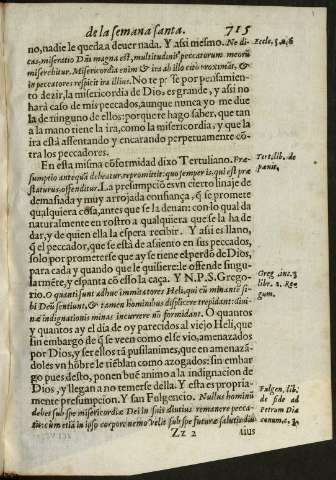 de la semana santa. 715
no, nadie le queda a deuer nada. Y assi mesmo. Ne di-
cas, miseratio Dñi magna est, multitudinis peccatorum meorũ
miserebitur. Misericordia enim & ira ab illo citò proximãt, &
in peccatores respicit ira illius. No te pasle por pensamien-
to dezir, la misericordia de Dios, es grande, y assi no
hará caso de mis pecados, aunque nunca yo me due
la de ninguno de ellos: porque te hago saber, que tan
a la mano tiene la ira, como la misericordia, y que la
ira está assentando y encarando perpetuamente cõ-
tra los peccadores.
En esta misma cõformidad dixo Tertuliano. Præ-
sumpsio antequã debeatur, repromittit: quo semper is, qui est præ
staturus, offenditur. La presumpciõ es vn cierto linaje de
demasiada y muy arrojada confiança, q̃ se promete
qualquiera cosa, antes que se la deuan: con lo qual da
naturalmente en rostro a qualquiera que se la ha de
dar, y de quien ella la espera recibir. Y assi es llano,
q̃ el peccador, que se está de assiento en sus peccados,
solo por prometerse que ay se tiene el perdõ de Dios,
para cada y quando que le quisiere: le offende singu-
larmẽte, y espanta cõ esso la caça. Y N.P.S. Grego-
rio. O quanti sunt adhuc immitatores Heli, qui cũ minantẽ si-
bi Deũ sentiunt, & tamen hominibus displicere trepidant: diui-
næ indignationis minas incurrere nõ formidant. O quantos
y quantos ay el dia de oy parecidos al viejo Heli, que
sin embargo de q̃ se veen como el se vio, amenazados
por Dios, y ser ellos tã pusilanimes, que en amenazã-
doles vn hõbre le tiẽblan como azogados: sin embar
go pues desto, ponen bué animo a la indignacion de
Dios, y llegan a no temerse della. Y esta es propria-
mente presumpcion. Y san Fulgencio. Nullus hominũ
debet sub spe misericordiæ Dei in suis diutius remanere pecca-
tis: cùm etiã in ipso corpore nemo velit sub spe futuræ salutis diu
Zz 2 tius
Eccle. 5. a. 6
Tert. lib. de
pœnit.
Greg. inc. 3
libr. 2. Re
gum.
Fulgen. lib.
de fide ad
Petrum Dia
conum c. 3.